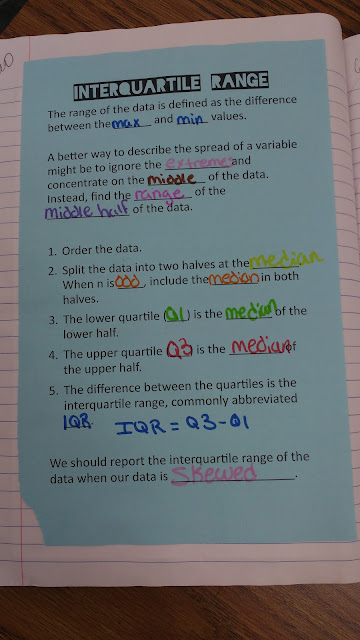 INTERQUARTILE RANGE
The range of the data is defined as the difference
between the max and min values.
A better way to describe the spread of a variable
might be to ignore the extremes and
concentrate on the middle of the data.
Instead, find the range of the
middle half of the data.
1. Order the data.
2. Split the data into two halves at the median
When n is odd, include the median in both
halves.
3. The lower quartile (Q1) is the median of the
lower half.
4. The upper quartile Q3 is the median of
the upper half.
5. The difference between the quartiles is the
interquartile range, commonly abbreviated
IQR. IQR = Q3-Q1
We should report the interquartile range of the
data when our data is skewed.